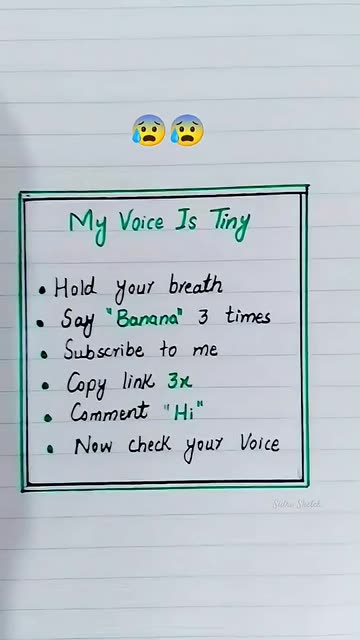 My Voice Is Tiny
• Hold your breath
• Say "Banana" 3 times
• Subscribe to me
• Copy link 3x
• Comment "Hi"
• Now check your Voice